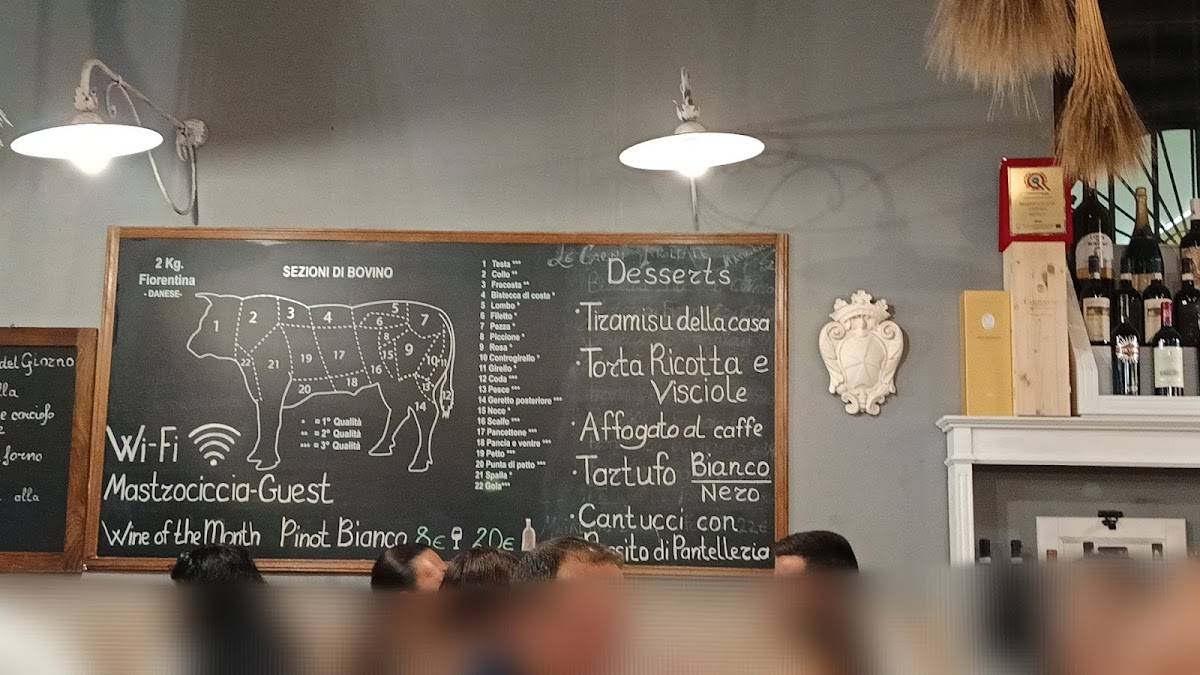 del Giorno
lla
e carciofo
forno
alla
2 Kg.
Fiorentina
- DANESE-
SEZIONI DI BOVINO
1
2
3
4
5
6
7
8
9
10
11
12
13
14
15
16
17
18
19
20
21
22
* = 1° Qualità
** = 2° Qualità
*** = 3° Qualità
1 Testa ***
2 Collo **
3 Fracosta **
4 Bistecca di costa *
5 Lombo *
6 Filetto *
7 Pezza *
8 Piccione *
9 Rosa *
10 Controgirello *
11 Girello *
12 Coda ***
13 Pesce ***
14 Geretto posteriore ***
15 Noce *
16 Scalfo ***
17 Pancettone ***
18 Pancia e ventre ***
19 Petto ***
20 Punta di petto ***
21 Spalla *
22 Gola***
Wi-Fi
Mastrociccia-Guest
Wine of the Month Pinot Bianco 8€ 20€
Desserts
· Tiramisu della casa
· Torta Ricotta e
Visciole
· Affogato al caffe
· Tartufo Bianco
Nero
· Cantucci con
Passito di Pantelleria